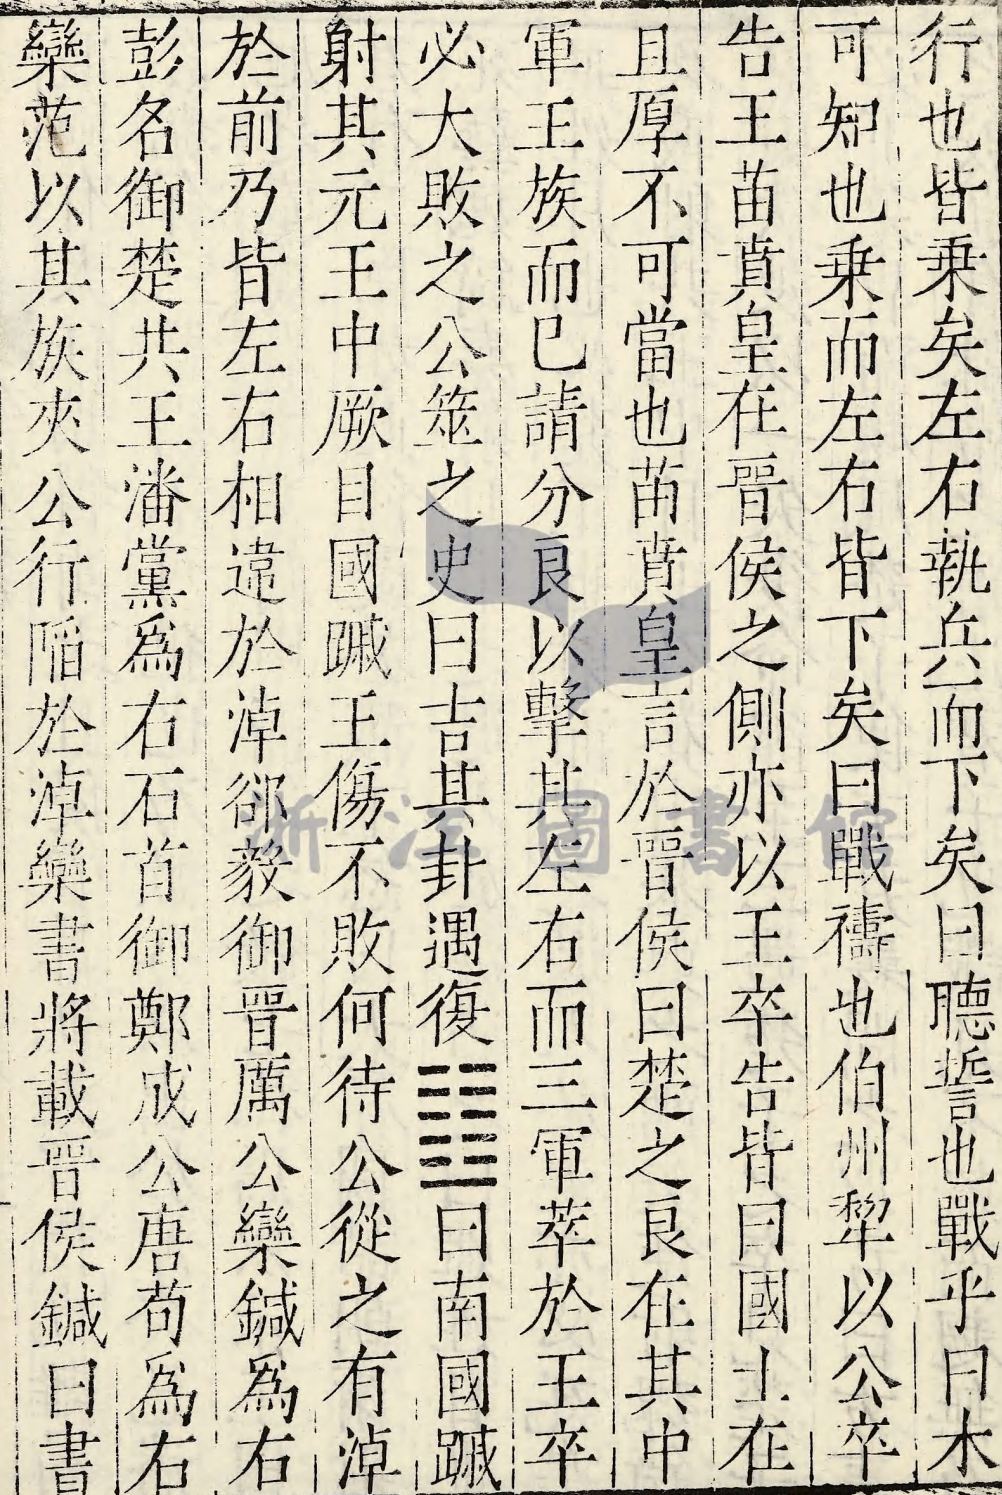 行也皆乗矣左右執兵而下矣曰聽誓也戰乎曰木
可知也乗而左右皆下矣曰戰禱也伯州犂以公卒
告王苗賁皇在晉侯之側亦以王卒告皆曰國士在
且厚不可當也苗賁皇言於晉侯曰楚之良在其中
軍王族而已請分良以擊其左右而三軍萃於王卒
必大敗之公筮之史曰吉其卦遇復䷗曰南國䠞
射其元王中厥目國䠞王傷不敗何待公從之有淖
於前乃皆左右相違於淖郤毅御晉厲公欒鍼為右
彭名御楚共王潘黨為右石首御鄭成公唐苟為右
欒范以其族夾公行陷於淖欒書將載晉侯鍼曰書
浙江圖書館